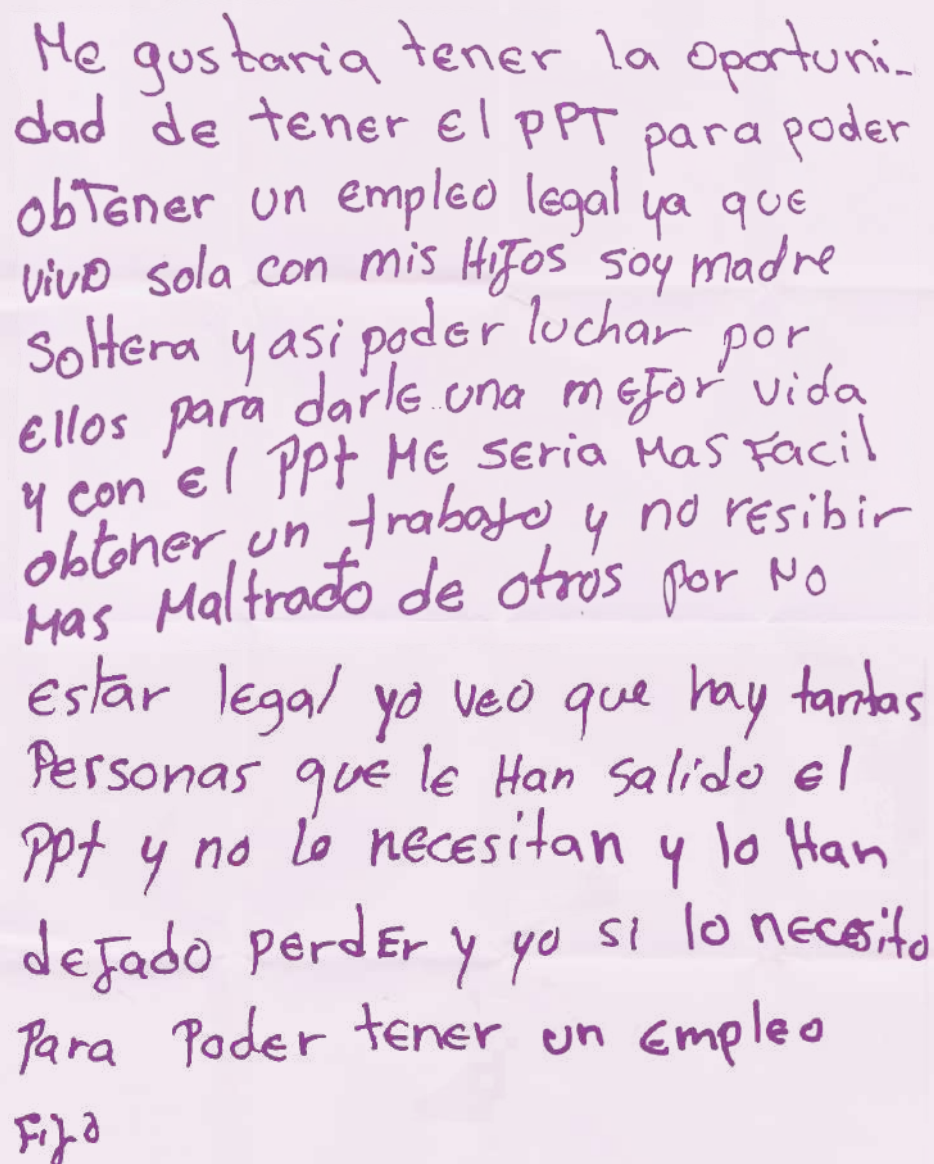 Me gustaria tener la oportuni-
dad de tener el PPT para poder
obTener un empleo legal ya que
vivo sola con mis HiJos soy madre
Soltera y asi poder luchar por
ellos para darle una meJor vida
y con el PPt ME seria Mas Facil
obtener un trabaJo y no resibir
Mas Maltrato de otros por No
Estar legal yo veo que hay tantas
Personas que le Han salido el
PPt y no lo necesitan y lo Han
deJado PerdEr y yo si lo necesito
Para Poder tener un empleo
FiJo